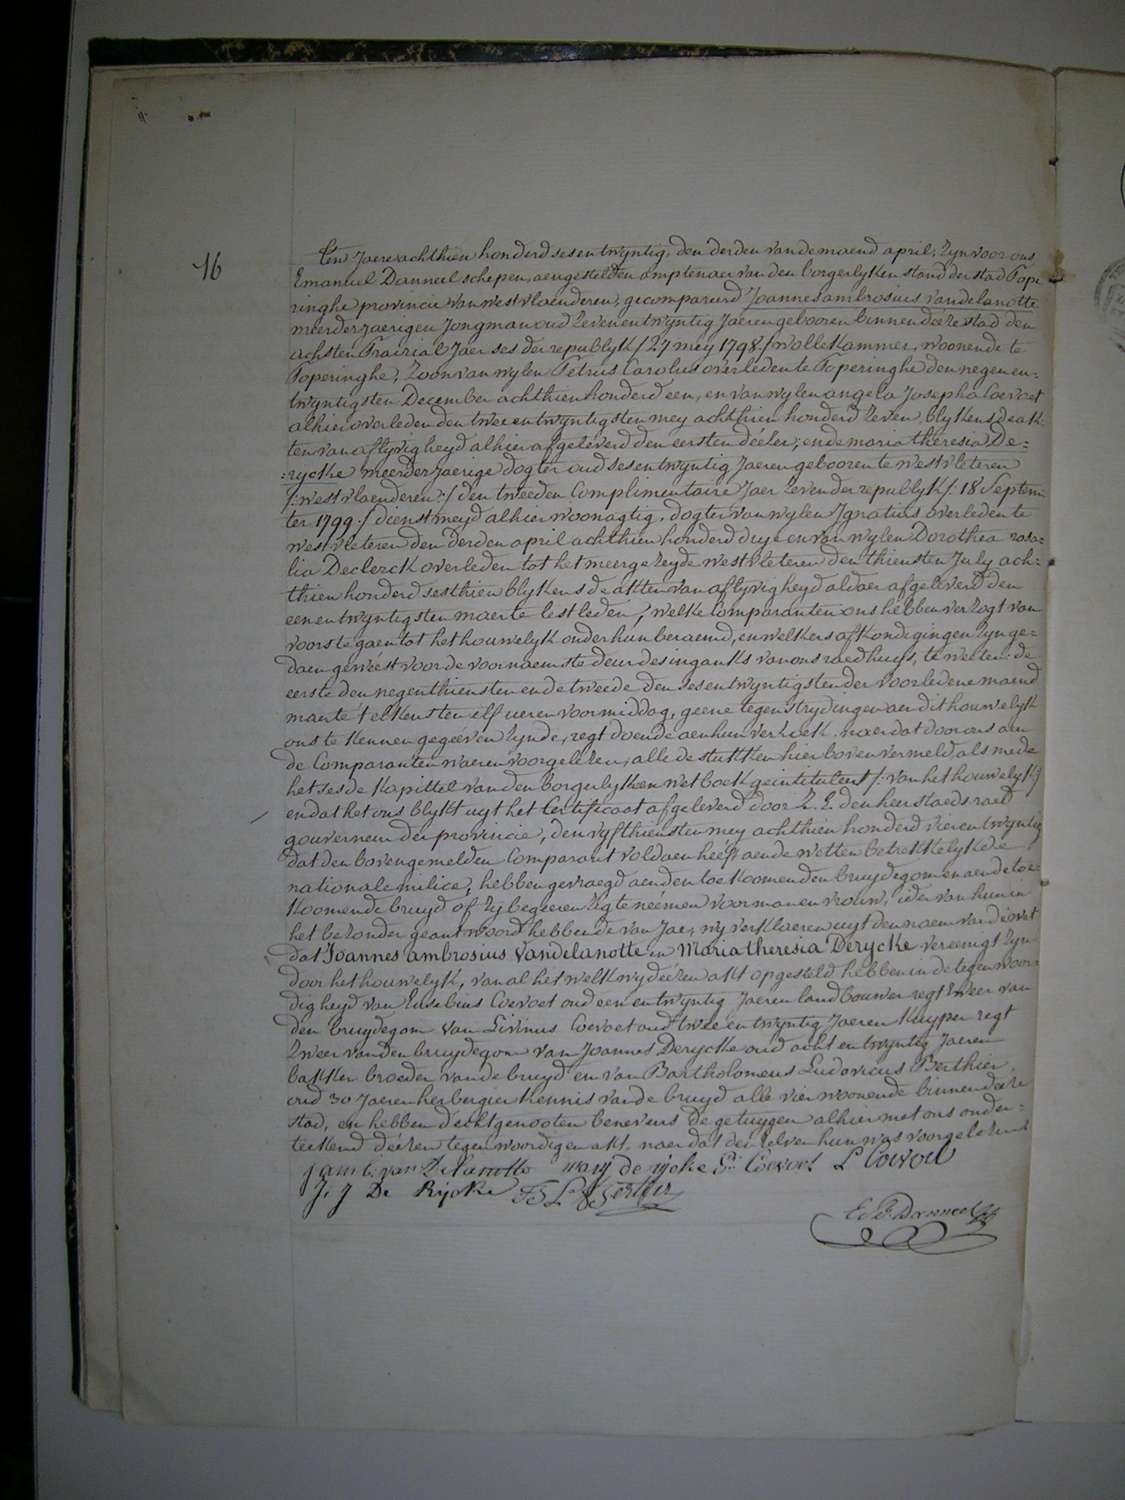 16
Ten Jaere achthien honderd sesentwyntig, den derden vandemaend april, zyn voor ons
Emanuel Danneel schepen, aengestelden amptenaer van den borgerlyken stand der stad Pope
ringhe provincie van westvlaenderen, gecompareerd Joannes ambrosius vandelanotte
meerderjaerigen Jongman oud zevenentwyntig Jaeren gebooren binnen deeze stad den
achsten Prairial Jaer ses der republyk /27 mey 1798/ wollekammer, woonende te
Poperinghe, zoon van wylen Petrus Carolus overleden te Poperinghe den negenen-
twyntigsten December achthienhonderd een, en van wylen angela Josepha Coevoet
alhier overleden den twee entwyntigsten mey achthien honderd zeven, blykens de ak-
ten van aflyvigheyd alhier afgeleverd den eersten deézer; ende maria theresia De-
:rycke meerderjaerige dogter oud sesentwyntig Jaeren gebooren te westvleteren
/:westvlaenderen:/ den tweeden Complimentaire Jaer zeven der republyk /:18 Septem-
ter 1799:/ dienstmeyd alhier woonagtig, dogter van wylen Ignatius overleden te
westvleteren den derden april achthien honderd drye en van wylen Dorothea rosa-
lia Declerck overleden tot het meergezeyde westvleteren den thiensten July ach-
thien honderd sesthien blykens de akten van aflyvigheyd aldaer afgeleverd den
eenentwyntigsten maerte lestleden, welke Comparanten ons hebben verzogt van
voorstegaen tot het houwelyk onder hun beraemd, en welkers afkondigingen zyn ge-
daen geweést voor de voornaemste deur des ingancks van ons raedhuys, te weeten: de
eerste den negenthiensten ende tweede den sesentwyntigsten der voorledene maend
maerte t'elkens ten elf ueren voormiddag, geene tegenstrydingen aen dit houwelyk
ons te kennen gegeéven zynde, regt doende aen hun verzoek naer dat door ons aen
de Comparanten waeren voorgelezen, alle de stukken hier boven vermeld, als mede
het sesde kapittel van den borgerlyken wetboek geintituleert /: van het houwelyk:/
en dat het ons blykt uyt het Certificaat afgeleverd door Z. E. den heer staeds raed
gouverneur der provincie, den vyfthiensten mey achthien honderd vier en twyntig
dat den bovengemelden Comparant voldaen heéft aende wetten betrekkelyk de
nationale milice, hebben gevraegd aen den toekoomenden bruydegom en aen de toe-
koomende bruyd of zy begeeren zig te neémen voor man en vrouw, ider van hun in
het bezonder geantwoord hebbende van Jae, wy verklaeren uyt den naem van de wet
dat Joannes ambrosius Vandelanotte en Maria theresia Derycke vereenigt zyn
door het houwelyk, van al het welk wy deézen akt opgesteld hebben in de tegenwoor-
digheyd van Eusebius Coevoet oud een entwyntig Jaeren landbouwer regtzweer van
den bruydegom van Livinus Coevoet oud twee en twyntig Jaeren kuyper regt
zweer van den bruydegom van Joannes Derycke oud acht en twyntig Jaeren
bakker broeder van de bruyd en van Bartholomeus Ludovicus Berthier
oud 30 Jaeren herbergier kennis van de bruyd alle vier woonende binnen deéze
stad, en hebben d'echtgenooten benevens de getuygen alhier met ons onder-
teekend deézen tegenwoordigen akt, naer dat den zelven hun was voorgelezen
vandelanotte de rycke Coevoet L Coevoet
J. J De Rycke
Danneel